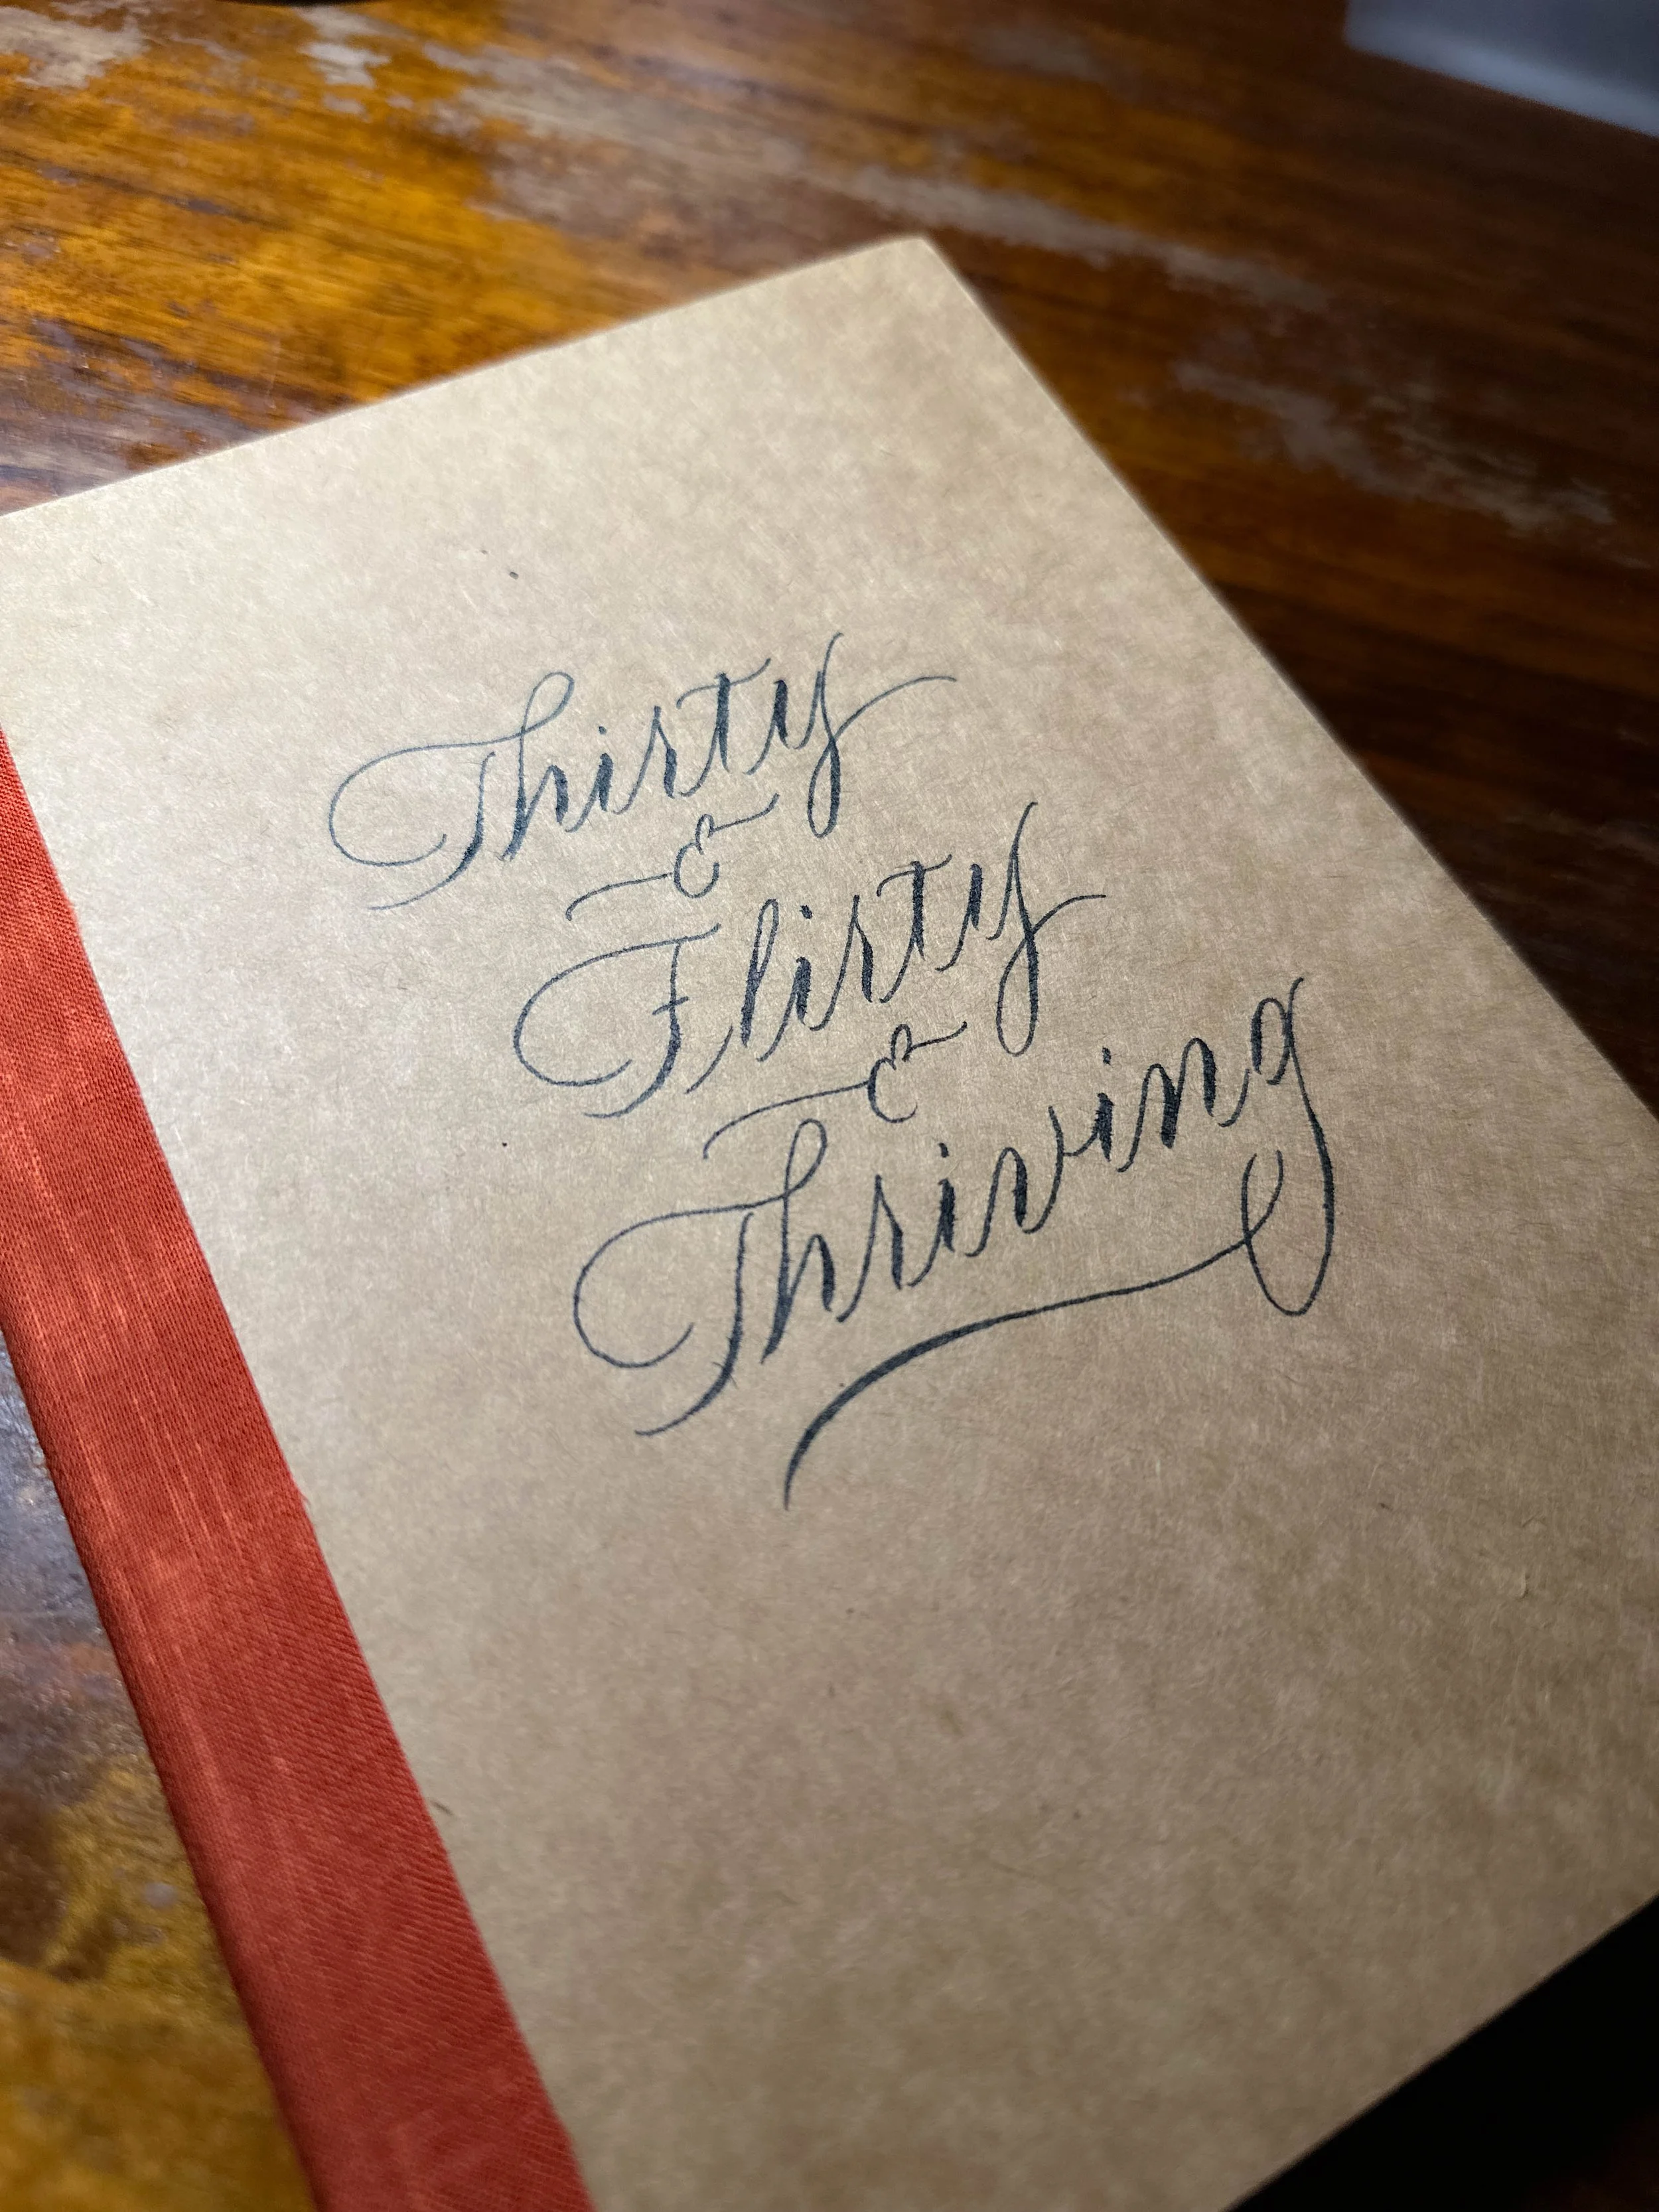 Thirty
&
Flirty
&
Thriving